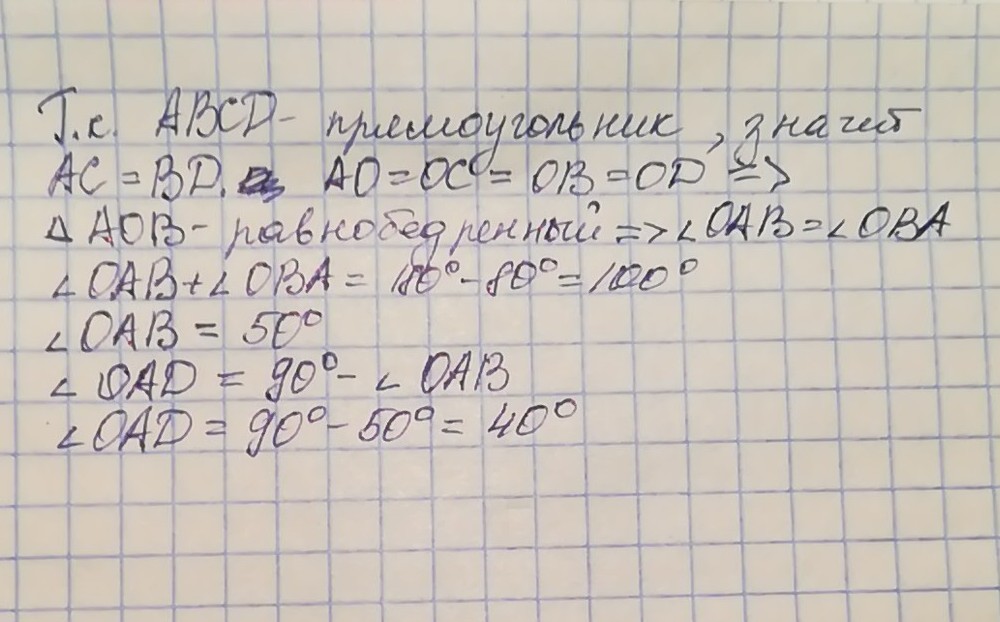 Т.к. ABCD - прямоугольник, значит
AC = BD. AO = OC = OB = OD =>
△ AOB - равнобедренный => ∠OAB = ∠OBA
∠OAB + ∠OBA = 180° - 80° = 100°
∠OAB = 50°
∠OAD = 90° - ∠OAB
∠OAD = 90° - 50° = 40°